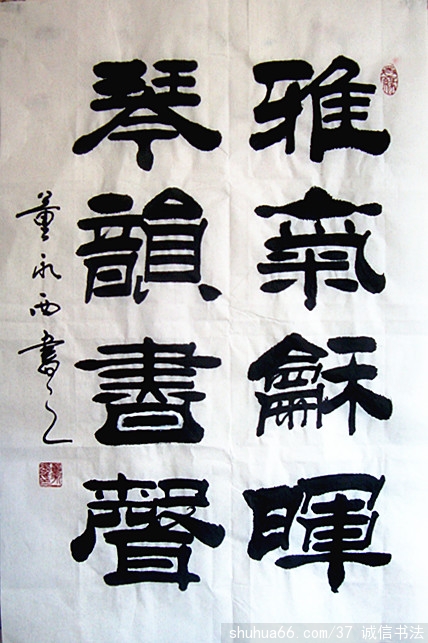 雅氣龢暉
琴韻書聲
董永西書之
shuhua66.com/37 诚信书法